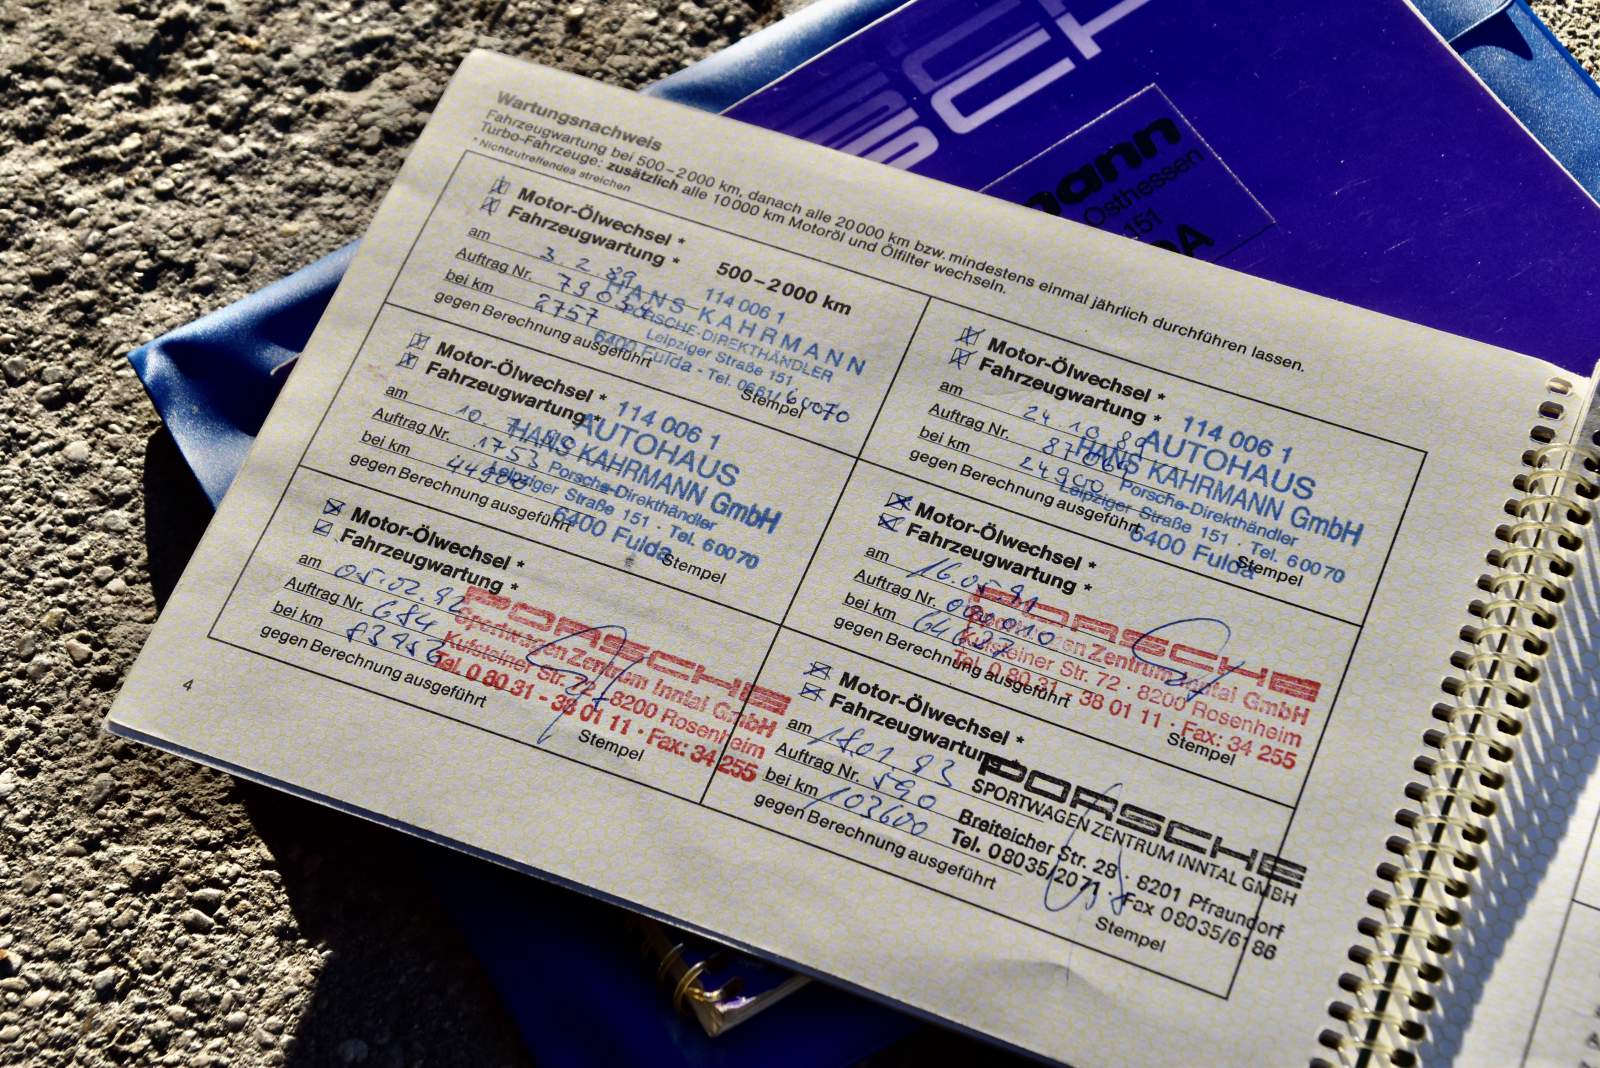 SCH
mann
Osthessen
151
DA
Wartungsnachweis
Fahrzeugwartung bei 500–2000 km, danach alle 20000 km bzw. mindestens einmal jährlich durchführen lassen.
Turbo-Fahrzeuge: zusätzlich alle 10000 km Motoröl und Ölfilter wechseln.
* Nichtzutreffendes streichen
Motor-Ölwechsel *
Fahrzeugwartung *
500–2000 km
am 3.2.89
Auftrag Nr.
bei km 2757
gegen Berechnung ausgeführt
Stempel
114 006 1
HANS KAHRMANN
PORSCHE-DIREKTHÄNDLER
Leipziger Straße 151
6400 Fulda - Tel. 0661/60070
Motor-Ölwechsel *
Fahrzeugwartung *
am 24.10.89
Auftrag Nr.
bei km 24900
gegen Berechnung ausgeführt
Stempel
114 006 1
AUTOHAUS
HANS KAHRMANN GmbH
Porsche-Direkthändler
Leipziger Straße 151 · Tel. 60070
6400 Fulda
Motor-Ölwechsel *
Fahrzeugwartung *
am 10.7.90
Auftrag Nr. 1753
bei km 44900
gegen Berechnung ausgeführt
Stempel
114 006 1
AUTOHAUS
HANS KAHRMANN GmbH
Porsche-Direkthändler
Leipziger Straße 151 · Tel. 60070
6400 Fulda
Motor-Ölwechsel *
Fahrzeugwartung *
am 16.05.91
Auftrag Nr. 000010
bei km 64637
gegen Berechnung ausgeführt
Stempel
PORSCHE
Sportwagen Zentrum Inntal GmbH
Kufsteiner Str. 72 · 8200 Rosenheim
Tel. 0 80 31 - 38 01 11 · Fax: 34 255
Motor-Ölwechsel *
Fahrzeugwartung *
am 05.02.92
Auftrag Nr. 684
bei km 83456
gegen Berechnung ausgeführt
Stempel
PORSCHE
Sportwagen Zentrum Inntal GmbH
Kufsteiner Str. 72 · 8200 Rosenheim
Tel. 0 80 31 - 38 01 11 · Fax: 34 255
Motor-Ölwechsel *
Fahrzeugwartung *
am 18.01.93
Auftrag Nr. 590
bei km 103600
gegen Berechnung ausgeführt
Stempel
PORSCHE
SPORTWAGEN ZENTRUM INNTAL GMBH
Breiteicher Str. 28 · 8201 Pfraundorf
Tel. 08035/2071 · Fax 08035/6186
4